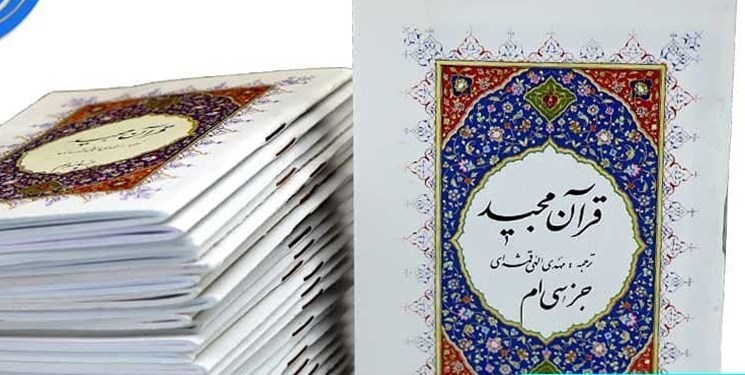 قرآن مجید
ترجمه : مهدی الهی قمشه‌ای
جزء سی ام
قرآن مجید